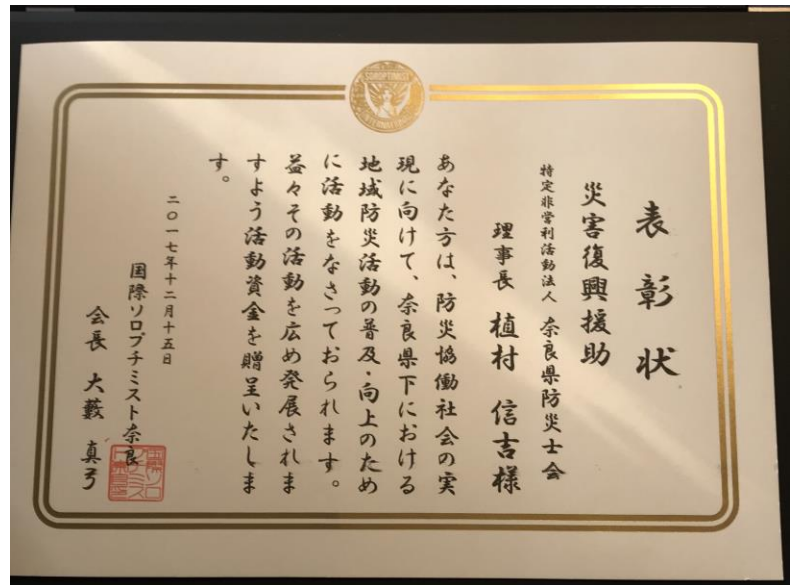 表彰状
災害復興援助
特定非営利活動法人 奈良県防災士会
理事長 植村 信吉様
あなた方は、防災協働社会の実
現に向けて、奈良県下における
地域防災活動の普及・向上のため
に活動をなさっておられます。
益々その活動を広め発展されま
すよう活動資金を贈呈いたしま
す。
二〇一七年十二月十五日
国際ソロプチミスト奈良
会長 大藪 真弓
SOROPTIMIST